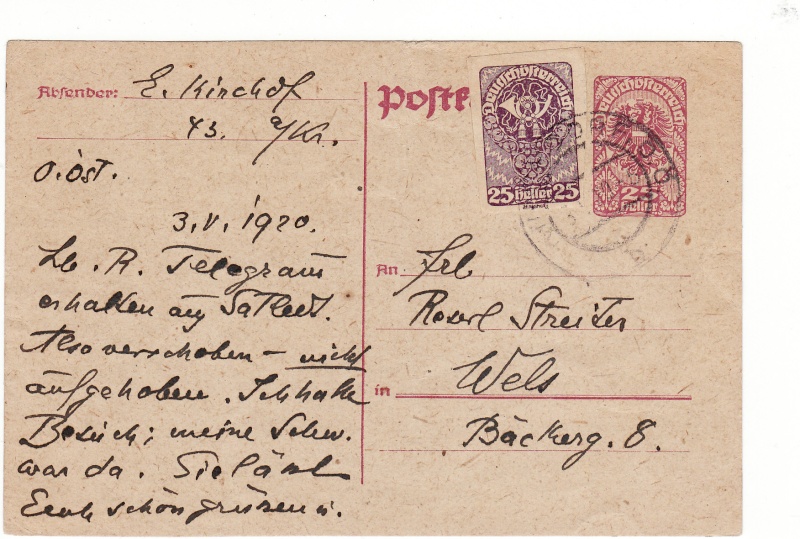 Absender: E. Kirchof
43. a/Kr.
O.öst.
3.V.1920.
Lb. R. Telegramm
erhalten
Also verschoben – nicht
aufgehoben. Ich hatte
Besuch; meine Schw.
war da. Sie läszt
Euch schön grüszen u.
Postk
Deutschösterreich
25 Heller 25
Deutschösterreich
25
Heller
An Frl
Roserl Streiter
in Wels
Bäckerg. 8.